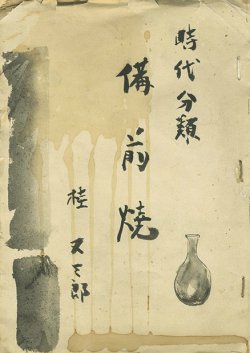 時代分類
備前焼
桂又三郎